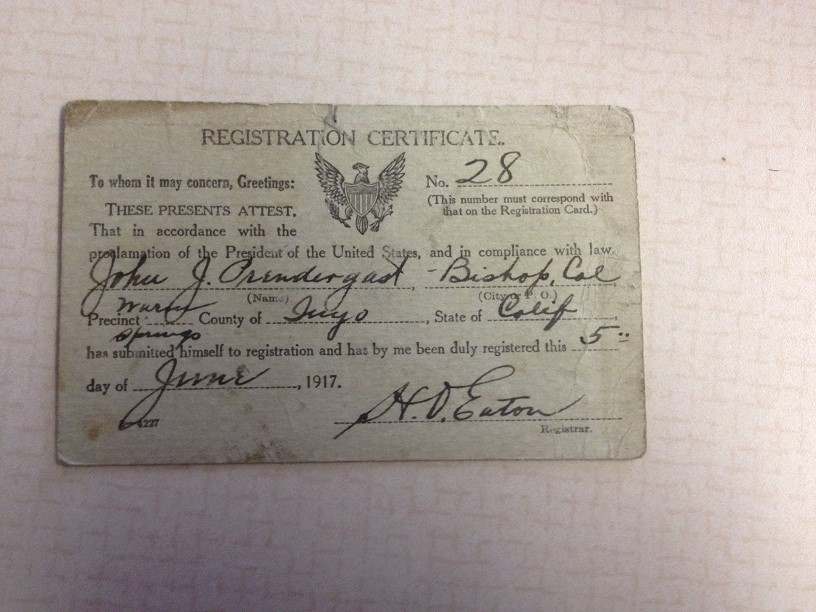 REGISTRATION CERTIFICATE.
To whom it may concern, Greetings:
No. 28
(This number must correspond with
that on the Registration Card.)
THESE PRESENTS ATTEST,
That in accordance with the
proclamation of the President of the United States, and in compliance with law.
John J. Prendergast, Bishop, Cal
(Name) (City or P. O.)
Warm
Precinct County of Inyo, State of Calif,
Springs
has submitted himself to registration and has by me been duly registered this 5
day of June, 1917.
H. V. Eaton
Registrar.